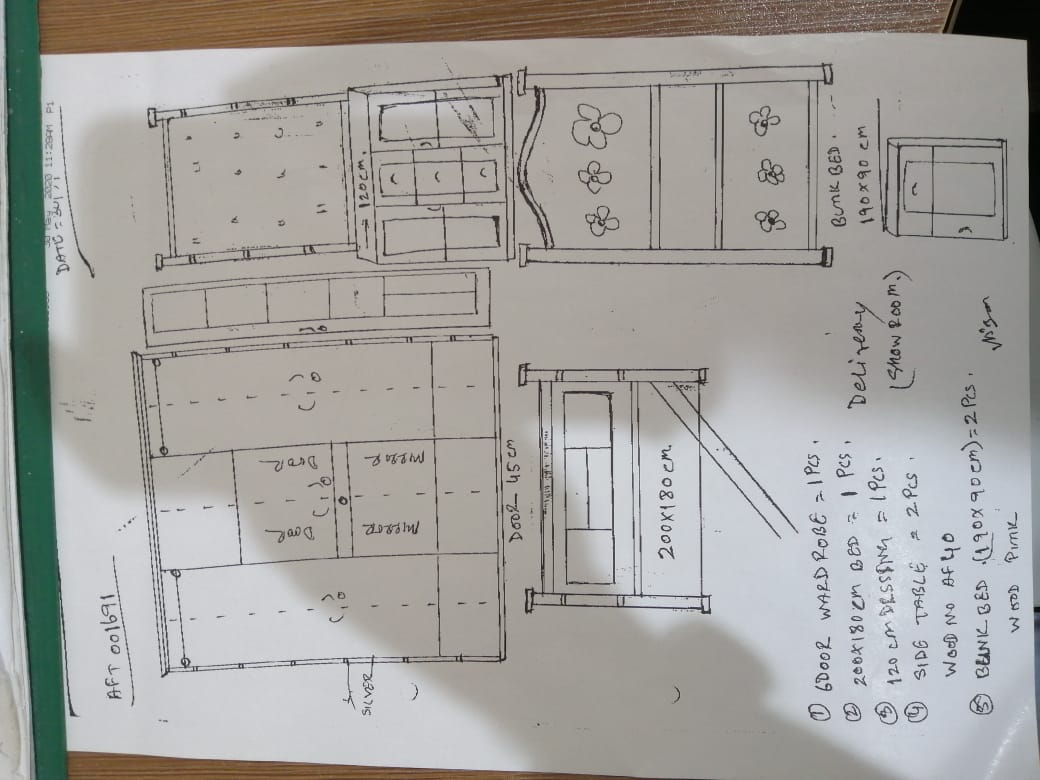 30 May 2020 11:28AM P1
DATE =
AFT 001691
DOOR
DOOR
SILVER
MIRROR
MIRROR
120cm.
DOOR 45cm
200X180cm.
① 6DOOR WARDROBE = 1Pcs.
② 200X180cm BED = 1 Pcs.
③ 120cm DRSSING = 1Pcs.
④ SIDE TABLE = 2Pcs.
WOOD NO AF40
⑤ BUNK BED .(190X90cm)=2Pcs.
WOOD PINK
Delivery
(Show Room.)
BUNK BED.
190X90 cm